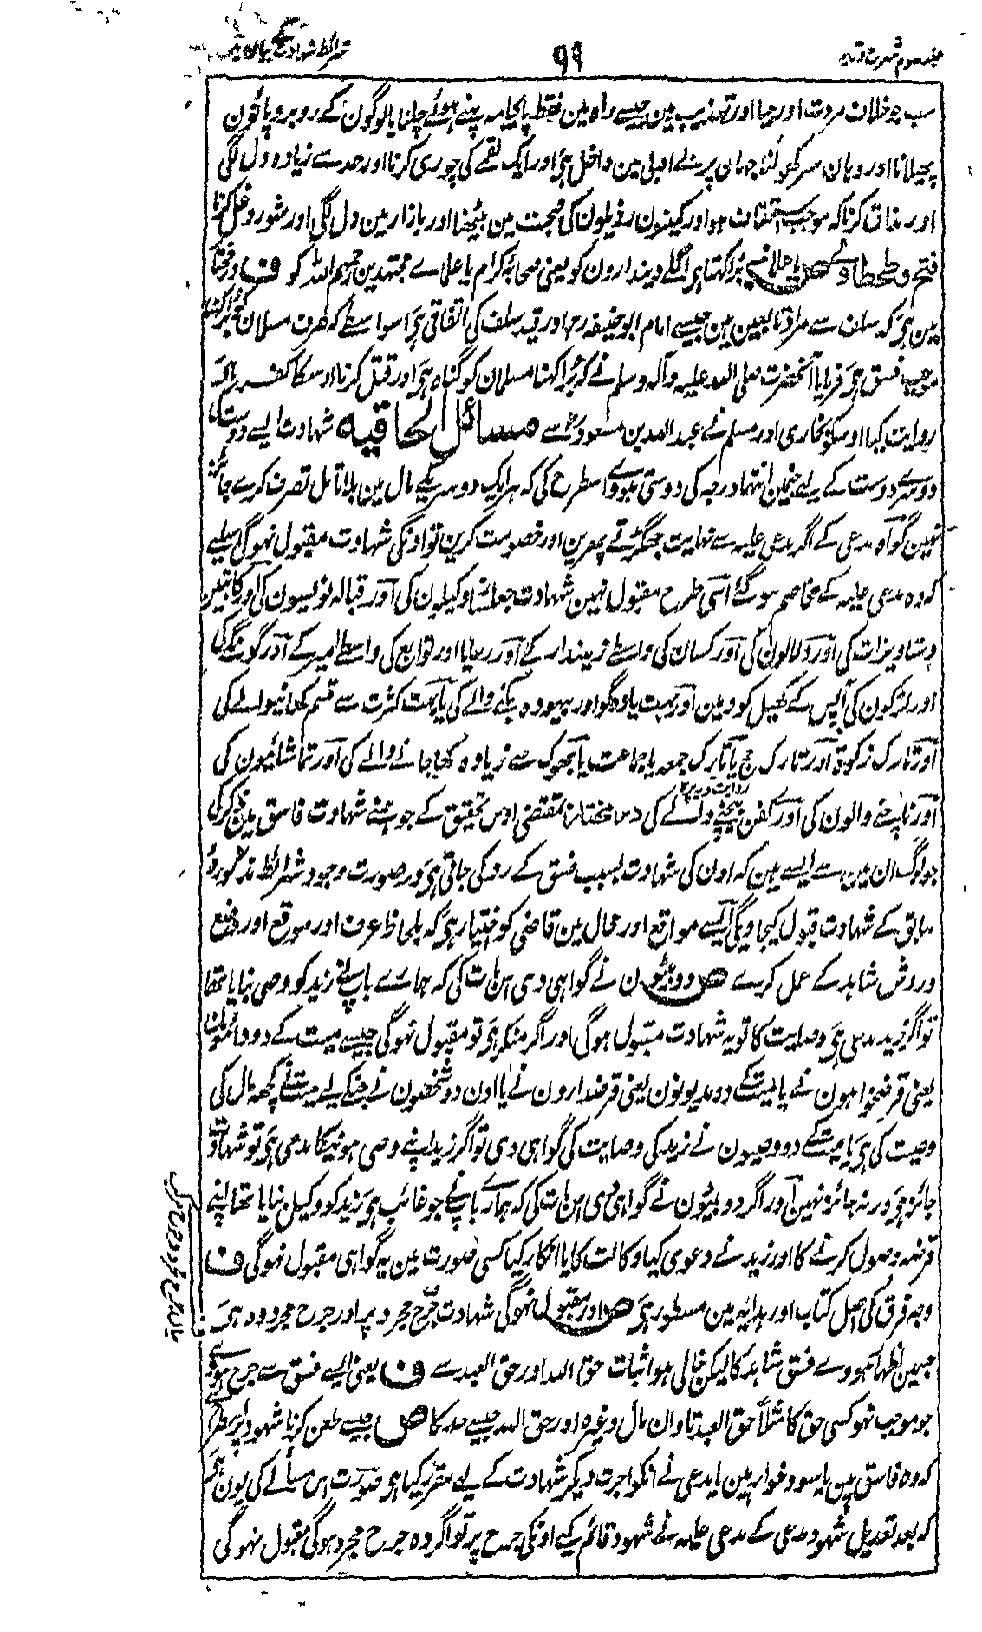 ۹۹
سب جو خلاف مروت اور حیا اور تہذیب ہین جیسے راہ مین فقط پاجامہ پہنے ہوئے چلنا یا لوگون کے روبرو پانون
پھیلانا اور وہان سر کھولنا جہان پر بے ادبی مین داخل ہی اور ایک لقمے کی چوری کرنا اور حد سے زیادہ دل لگی
اور مذاق کرنا کہ موجب استخفاف ہو اور کمینون رذیلون کی صحبت مین بیٹھنا اور بازار مین دل لگی اور شور و غل کرنا
فتح و طحطاوی ص یا علانیہ بُرا کہتا ہو اگلے دیندارون کو یعنی صحابہ کرام یا علماے مجتہدین رحمہم اللہ کو ف
مین ہی کہ سلف سے مراد تابعین ہین جیسے امام ابو حنیفہ رح اور قید سلف کی اتفاقی ہی اسواسطے کہ طرف مسلمان
موجب فسق ہی فرمایا آنحضرت صلی اللہ علیہ وآلہ وسلم نے کہ بُرا کہنا مسلمان کو گناہ ہی اور قتل کرنا اوسکا کفر ہی
روایت کیا اوسکو بخاری اور مسلم نے عبداللہ بن مسعود رض سے مسائل الحاقیہ شہادت ایسے دوست
دوسرے دوست کے لیے جنمین انتہا درجہ کی دوستی ہووے اسطرح کی کہ ہر ایک دوسرے کے مال مین بلا تامل تصرف کرے جائز
نہین گواہ مدعی کے اگر مدعی علیہ سے نہایت جھگڑتے پھرین اور خصومت کرین تو اونکی شہادت مقبول نہوگی اسلیے
کہ وہ مدعی علیہ کے مخاصم ہوگئے اسی طرح مقبول نہین شہادت جعلساز وکیلون کی اور قبالہ نویسون کی اور کاتبین
دستاویزات کی اور دلالون کی اور کسان کی واسطے زمیندار کے اور رعایا اور توابع کی واسطے امیر کے اور گونگے کی
اور لڑکون کی آپس کے کھیل کود مین اور بہت یاوہ گو اور بیہودہ بکنے والے کی یا بہت کثرت سے قسم کھانیوالے کی
اور تارک زکوۃ اور تارک حج یا تارک جمعہ یا جماعت یا بھوک سے زیادہ کھا جانے والے کی اور تماشائیون کی
اور ناچنے والون کی اور کفن بیچنے والے کی در مختار مقتضی اوس تحقیق کے جو ہمنے شہادت فاسق مین ذکر کی
جو لوگ ان مین سے ایسے ہین کہ اون کی شہادت بسبب فسق کے رد کی جاتی ہی در صورت وجود شرائط مذکورہ
سابق کے شہادت قبول کیجاویگی ایسے مواقع اور محال مین قاضی کو اختیار ہی کہ بلحاظ عرف اور موقع اور وضع
و روش شاہد کے عمل کرے ص دو بیٹون نے گواہی دی اس بات کی کہ ہمارے باپ نے زید کو وصی بنایا تھا
تو اگر زید مدعی ہی وصایت کا تو یہ شہادت مقبول ہوگی اور اگر منکر ہی تو مقبول نہوگی جیسے میت کے دو دائنون
یعنی قرضخواہون نے یا میت کے دو مدیونون یعنی قرضدارون نے یا اون دو شخصون نے جنکے لیے میت نے کچھ مال کی
وصیت کی ہی یا میت کے دو وصیون نے زید کی وصایت کی گواہی دی تو اگر زید اپنے وصی ہونیکا مدعی ہی تو شہادت
جائز ہی ورنہ جائز نہین اور اگر دو بیٹون نے گواہی دی اس بات کی کہ ہمارے باپ نے جو غائب ہی زید کو وکیل بنایا تھا اپنے
قرضہ وصول کرنے کا اور زید نے دعوی کیا وکالت کا یا انکار کیا کسی صورت مین یہ گواہی مقبول نہوگی ف
وجہ فرق کی اصل کتاب اور ہدایہ مین مسطور ہی ص اور مقبول نہوگی شہادت جرح مجرد پر اور جرح مجرد وہ ہی
جسمین اظہار ہووے فسق شاہد کا لیکن خالی ہو اثبات حق اللہ اور حق العبد سے ف یعنی ایسے فسق سے جرح ہووے
جو موجب نہو کسی حق کا مثلاً حق العبد تاوان مال وغیرہ اور حق اللہ جیسے حد کا ص جیسے طعن کرنا شہود پر
کہ وہ فاسق ہین یا سود خوار ہین یا مدعی نے انکو اجرت دیکر شہادت کے لیے مقرر کیا ہو صورت اس مسألے کی یون ہی
کہ بعد تعدیل شہود مدعی کے مدعی علیہ نے شہود قائم کیے اونکی جرح پر تو اگر وہ جرح مجرد ہوگی مقبول نہوگی